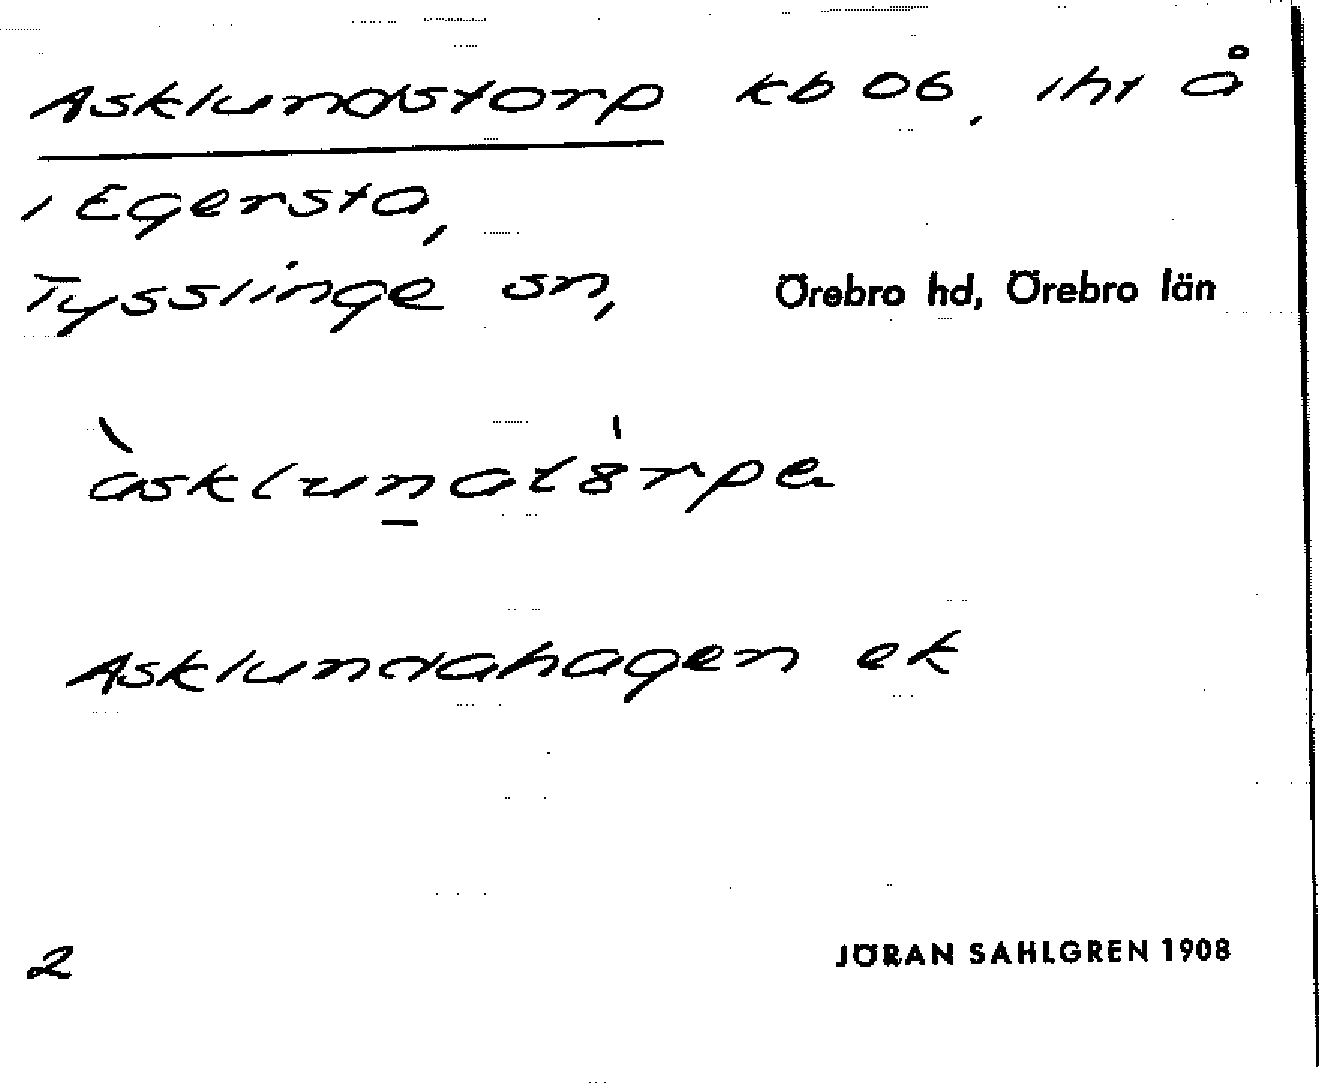 Asklundstorp kb 06, iht å
i Egersta,
Tysslinge sn, Örebro hd, Örebro län
àsklunat8rpe
Asklundahagen ek
2 JÖRAN SAHLGREN 1908